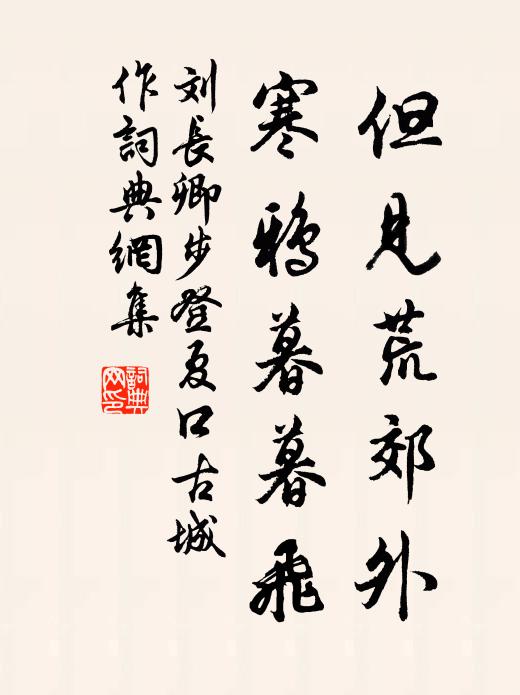 但见荒郊外
寒鸦暮暮飛
刘長卿步登夏口古城
作詞典網集
詞典網印